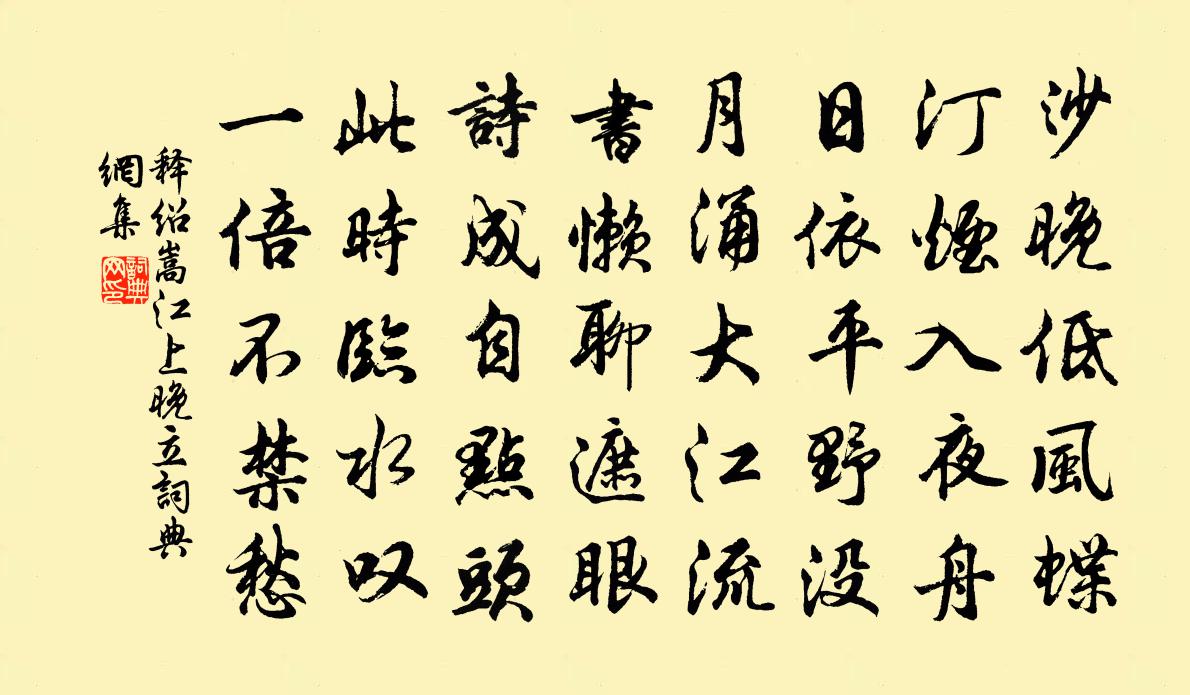 沙晚低風蝶
汀煙入夜舟
日依平野没
月涌大江流
書懶聊遮眼
詩成自點頭
此時臨水叹
一倍不禁愁
释紹嵩江上晚立詞典
網集
詞典網印